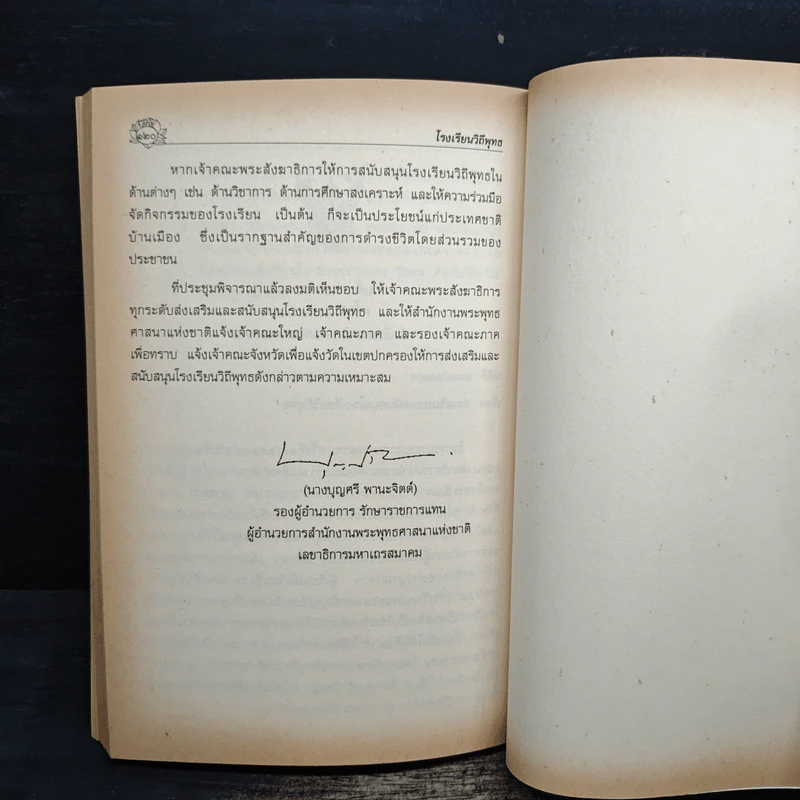 ๑๒๐
โรงเรียนวิถีพุทธ
หากเจ้าคณะพระสังฆาธิการให้การสนับสนุนโรงเรียนวิถีพุทธใน
ด้านต่างๆ เช่น ด้านวิชาการ ด้านการศึกษาสงเคราะห์ และให้ความร่วมมือ
จัดกิจกรรมของโรงเรียน เป็นต้น ก็จะเป็นประโยชน์แก่ประเทศชาติ
บ้านเมือง ซึ่งเป็นรากฐานสำคัญของการดำรงชีวิตโดยส่วนรวมของ
ประชาชน
ที่ประชุมพิจารณาแล้วลงมติเห็นชอบ ให้เจ้าคณะพระสังฆาธิการ
ทุกระดับส่งเสริมและสนับสนุนโรงเรียนวิถีพุทธ และให้สำนักงานพระพุทธ
ศาสนาแห่งชาติแจ้งเจ้าคณะใหญ่ เจ้าคณะภาค และรองเจ้าคณะภาค
เพื่อทราบ แจ้งเจ้าคณะจังหวัดเพื่อแจ้งวัดในเขตปกครองให้การส่งเสริมและ
สนับสนุนโรงเรียนวิถีพุทธดังกล่าวตามความเหมาะสม
(นางบุญศรี พานะจิตต์)
รองผู้อำนวยการ รักษาราชการแทน
ผู้อำนวยการสำนักงานพระพุทธศาสนาแห่งชาติ
เลขาธิการมหาเถรสมาคม